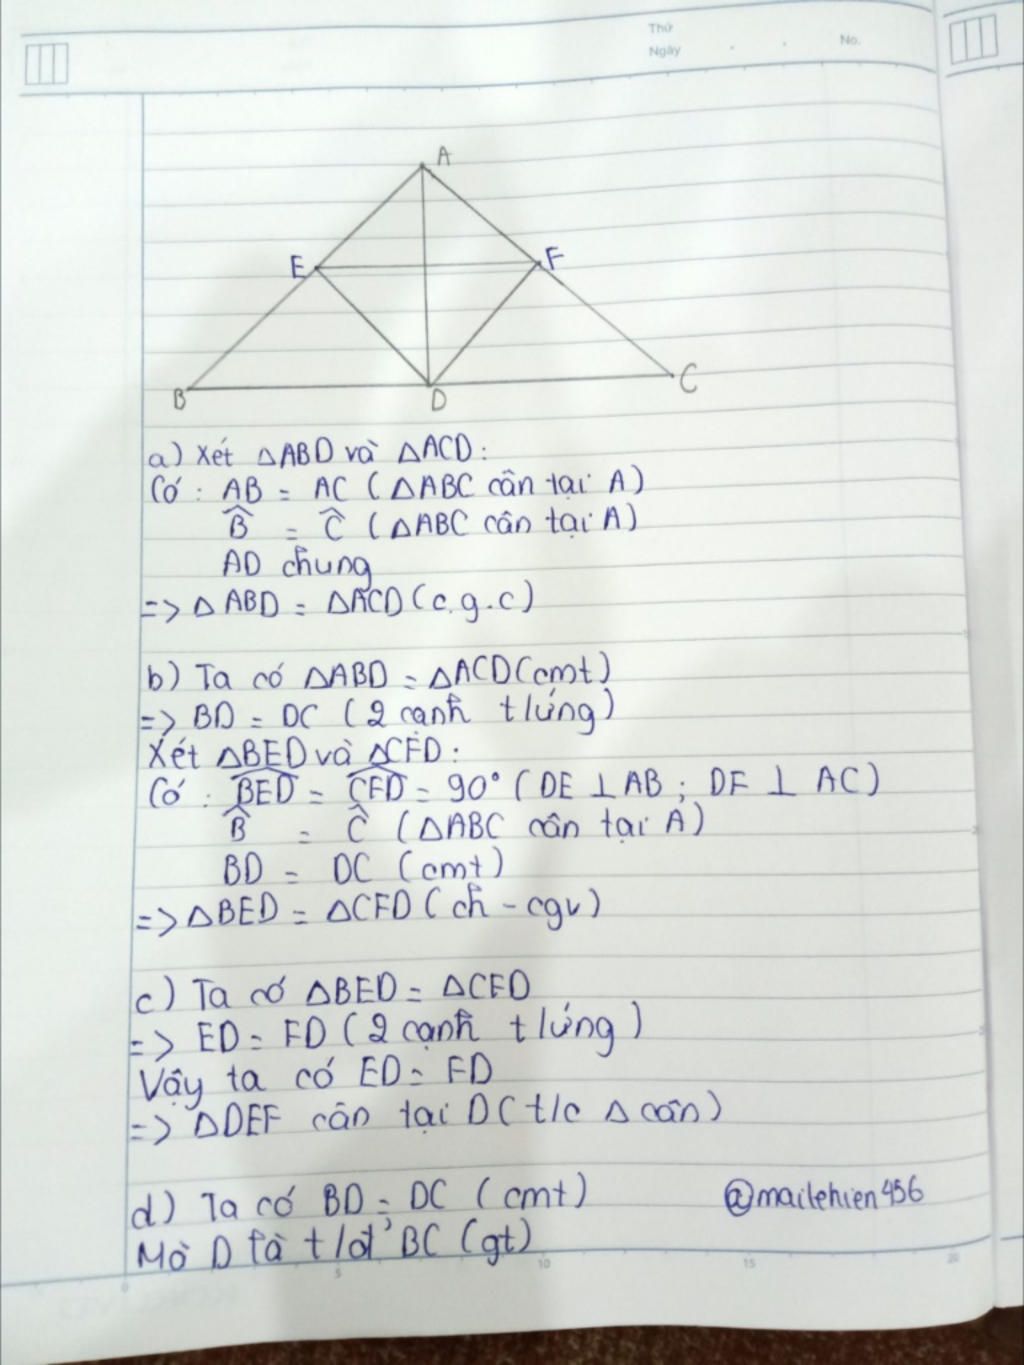 Thứ
Ngày
No.
A
E
F
B
D
C
a) Xét △ABD và △ACD:
Có: AB = AC (△ABC cân tại A)
B̂ = Ĉ (△ABC cân tại A)
AD chung
=> △ABD = △ACD (c.g.c)
b) Ta có △ABD = △ACD (cmt)
=> BD = DC (2 cạnh t/ứng)
Xét △BED và △CFD:
Có: BED̂ = CFD̂ = 90° (DE ⊥ AB; DF ⊥ AC)
B̂ = Ĉ (△ABC cân tại A)
BD = DC (cmt)
=> △BED = △CFD (ch - cgv)
c) Ta có △BED = △CFD
=> ED = FD (2 cạnh t/ứng)
Vậy ta có ED = FD
=> △DEF cân tại D (t/c △ cân)
d) Ta có BD = DC (cmt)
@mailehien456
Mà D là t/đ' BC (gt)
5
10
15
20